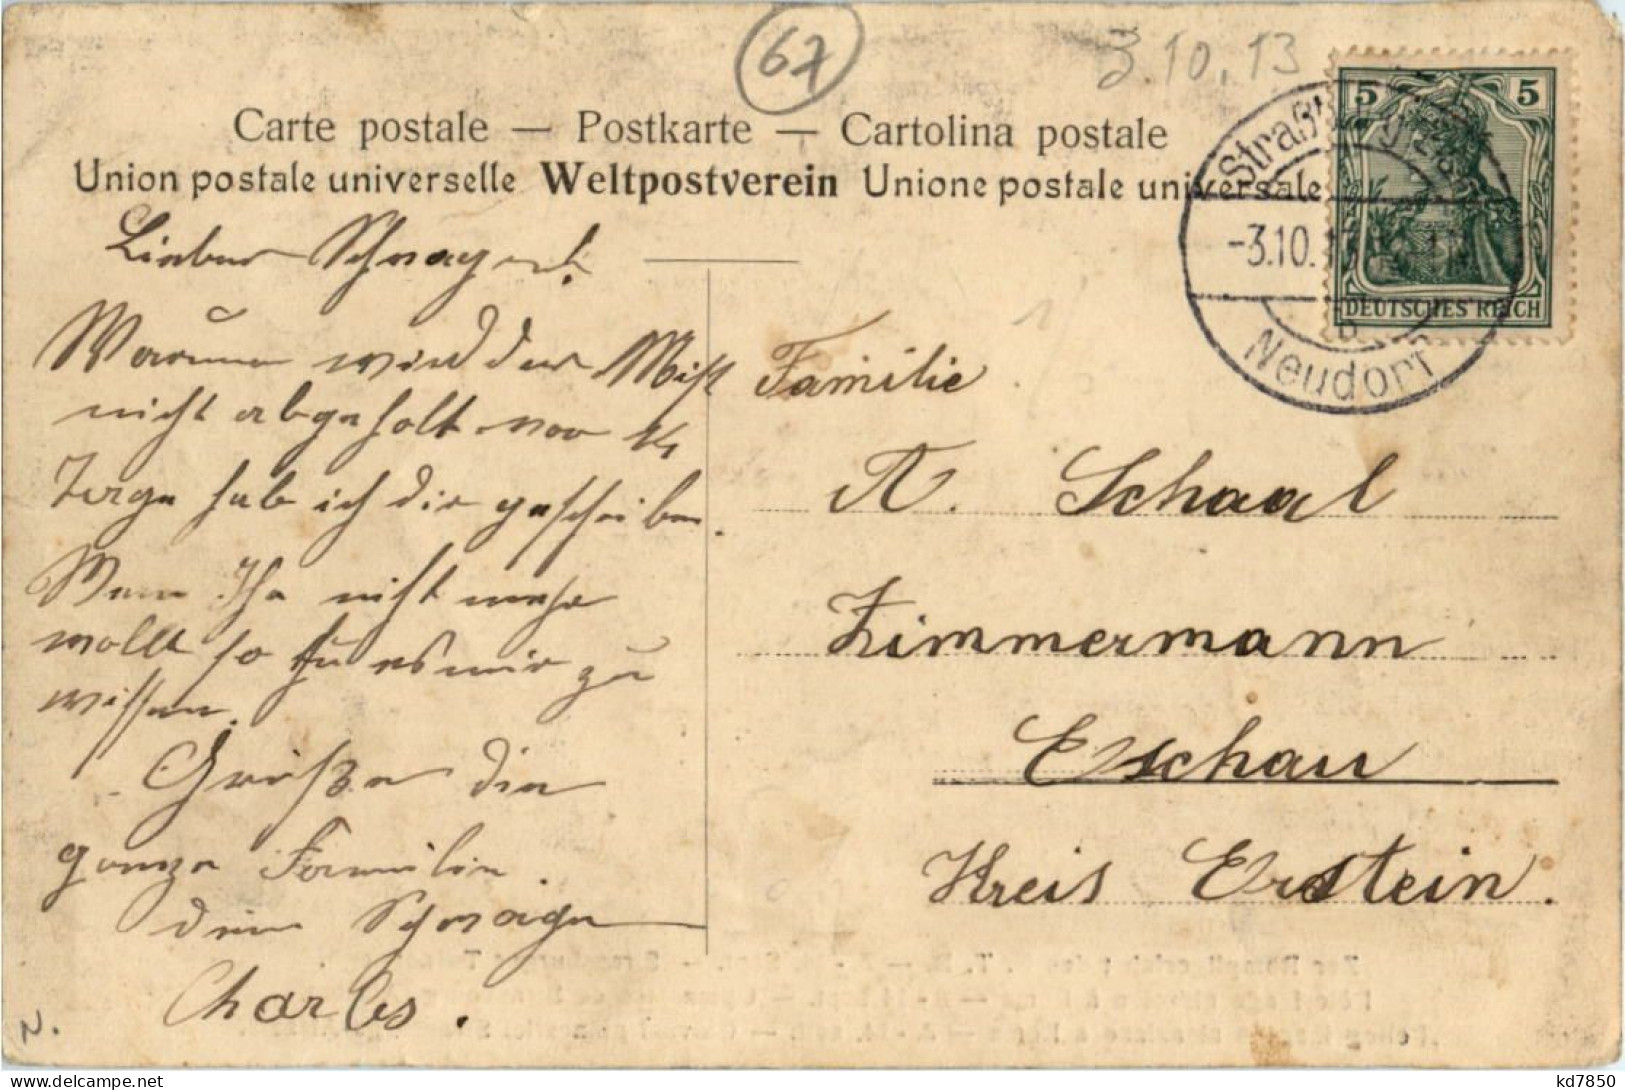 67
3.10.13
Carte postale — Postkarte — Cartolina postale
Union postale universelle Weltpostverein Unione postale universale
5 5
DEUTSCHES REICH
-3.10.
Neudorf
Lieber Schwager!
Warum wird der Mist
nicht abgeholt vor 14
Tage hab ich dir geschrieben.
Wenn Ihr nicht mehr
wollt so es mir zu
wissen.
Grüße die
ganze Familie.
dein Schwager
Charles.
Familie
A. Schaal
Zimmermann
Eschau
Kreis Erstein.
N.
kd7850